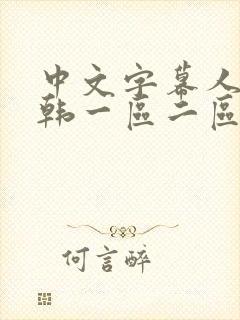 中文字幕人
韩一區二區
何言醉